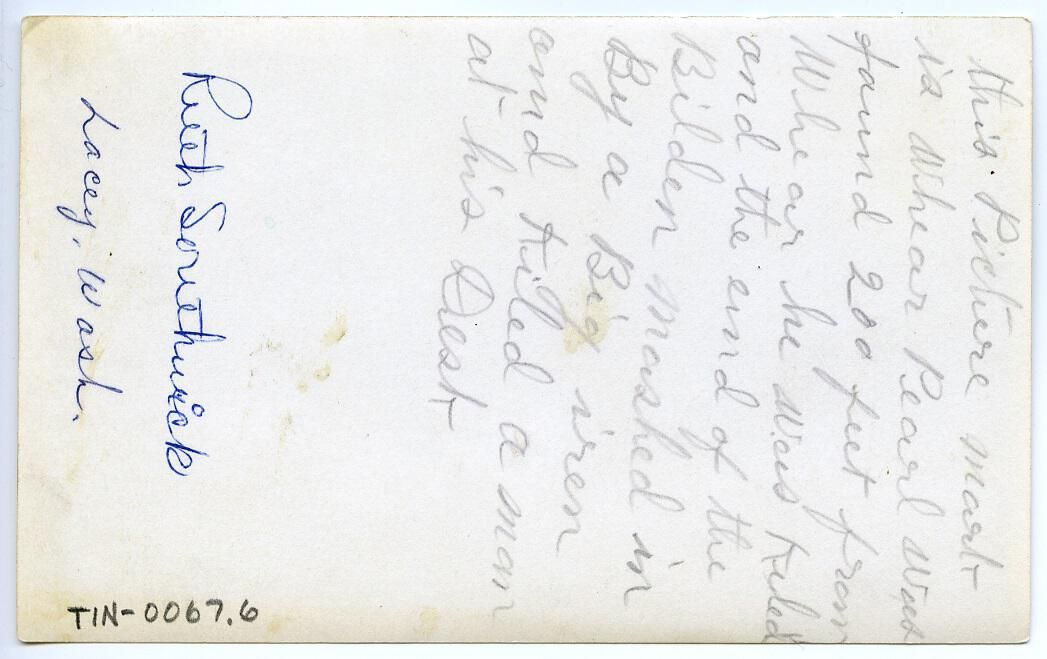 this. Picture mark
is Whear Pearl was
found 200 fut from
Whear he was kiled
and the end of the
Bilden mashed in
By a Big iren
and kiled a man
at his Dest
Ruth Southwick
Lacey, Wash.
TIN-0067.6